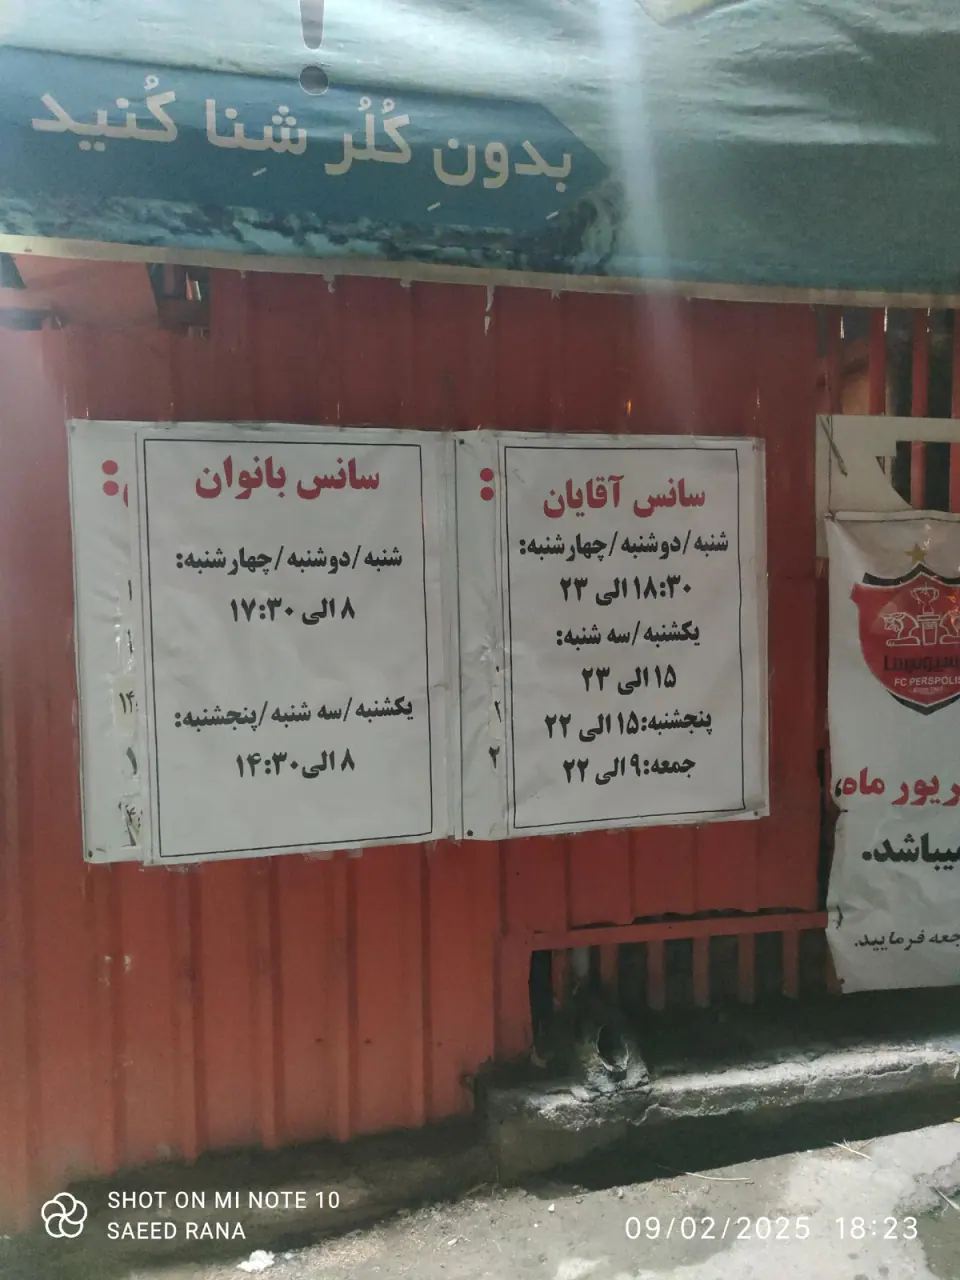 !
بِدونِ کُلُر شِنا کُنید
سانس بانوان
شنبه/دوشنبه/چهارشنبه:
۸ الی ۱۷:۳۰
یکشنبه/سه شنبه/پنجشنبه:
۸ الی ۱۴:۳۰
سانس آقایان
شنبه/دوشنبه/چهارشنبه:
۱۸:۳۰ الی ۲۳
یکشنبه/سه شنبه:
۱۵ الی ۲۳
پنجشنبه:۱۵ الی ۲۲
جمعه:۹ الی ۲۲
FC PERSPOLIS
ماه،
میباشد.
فرمایید.
SHOT ON MI NOTE 10
SAEED RANA
09/02/2025 18:23